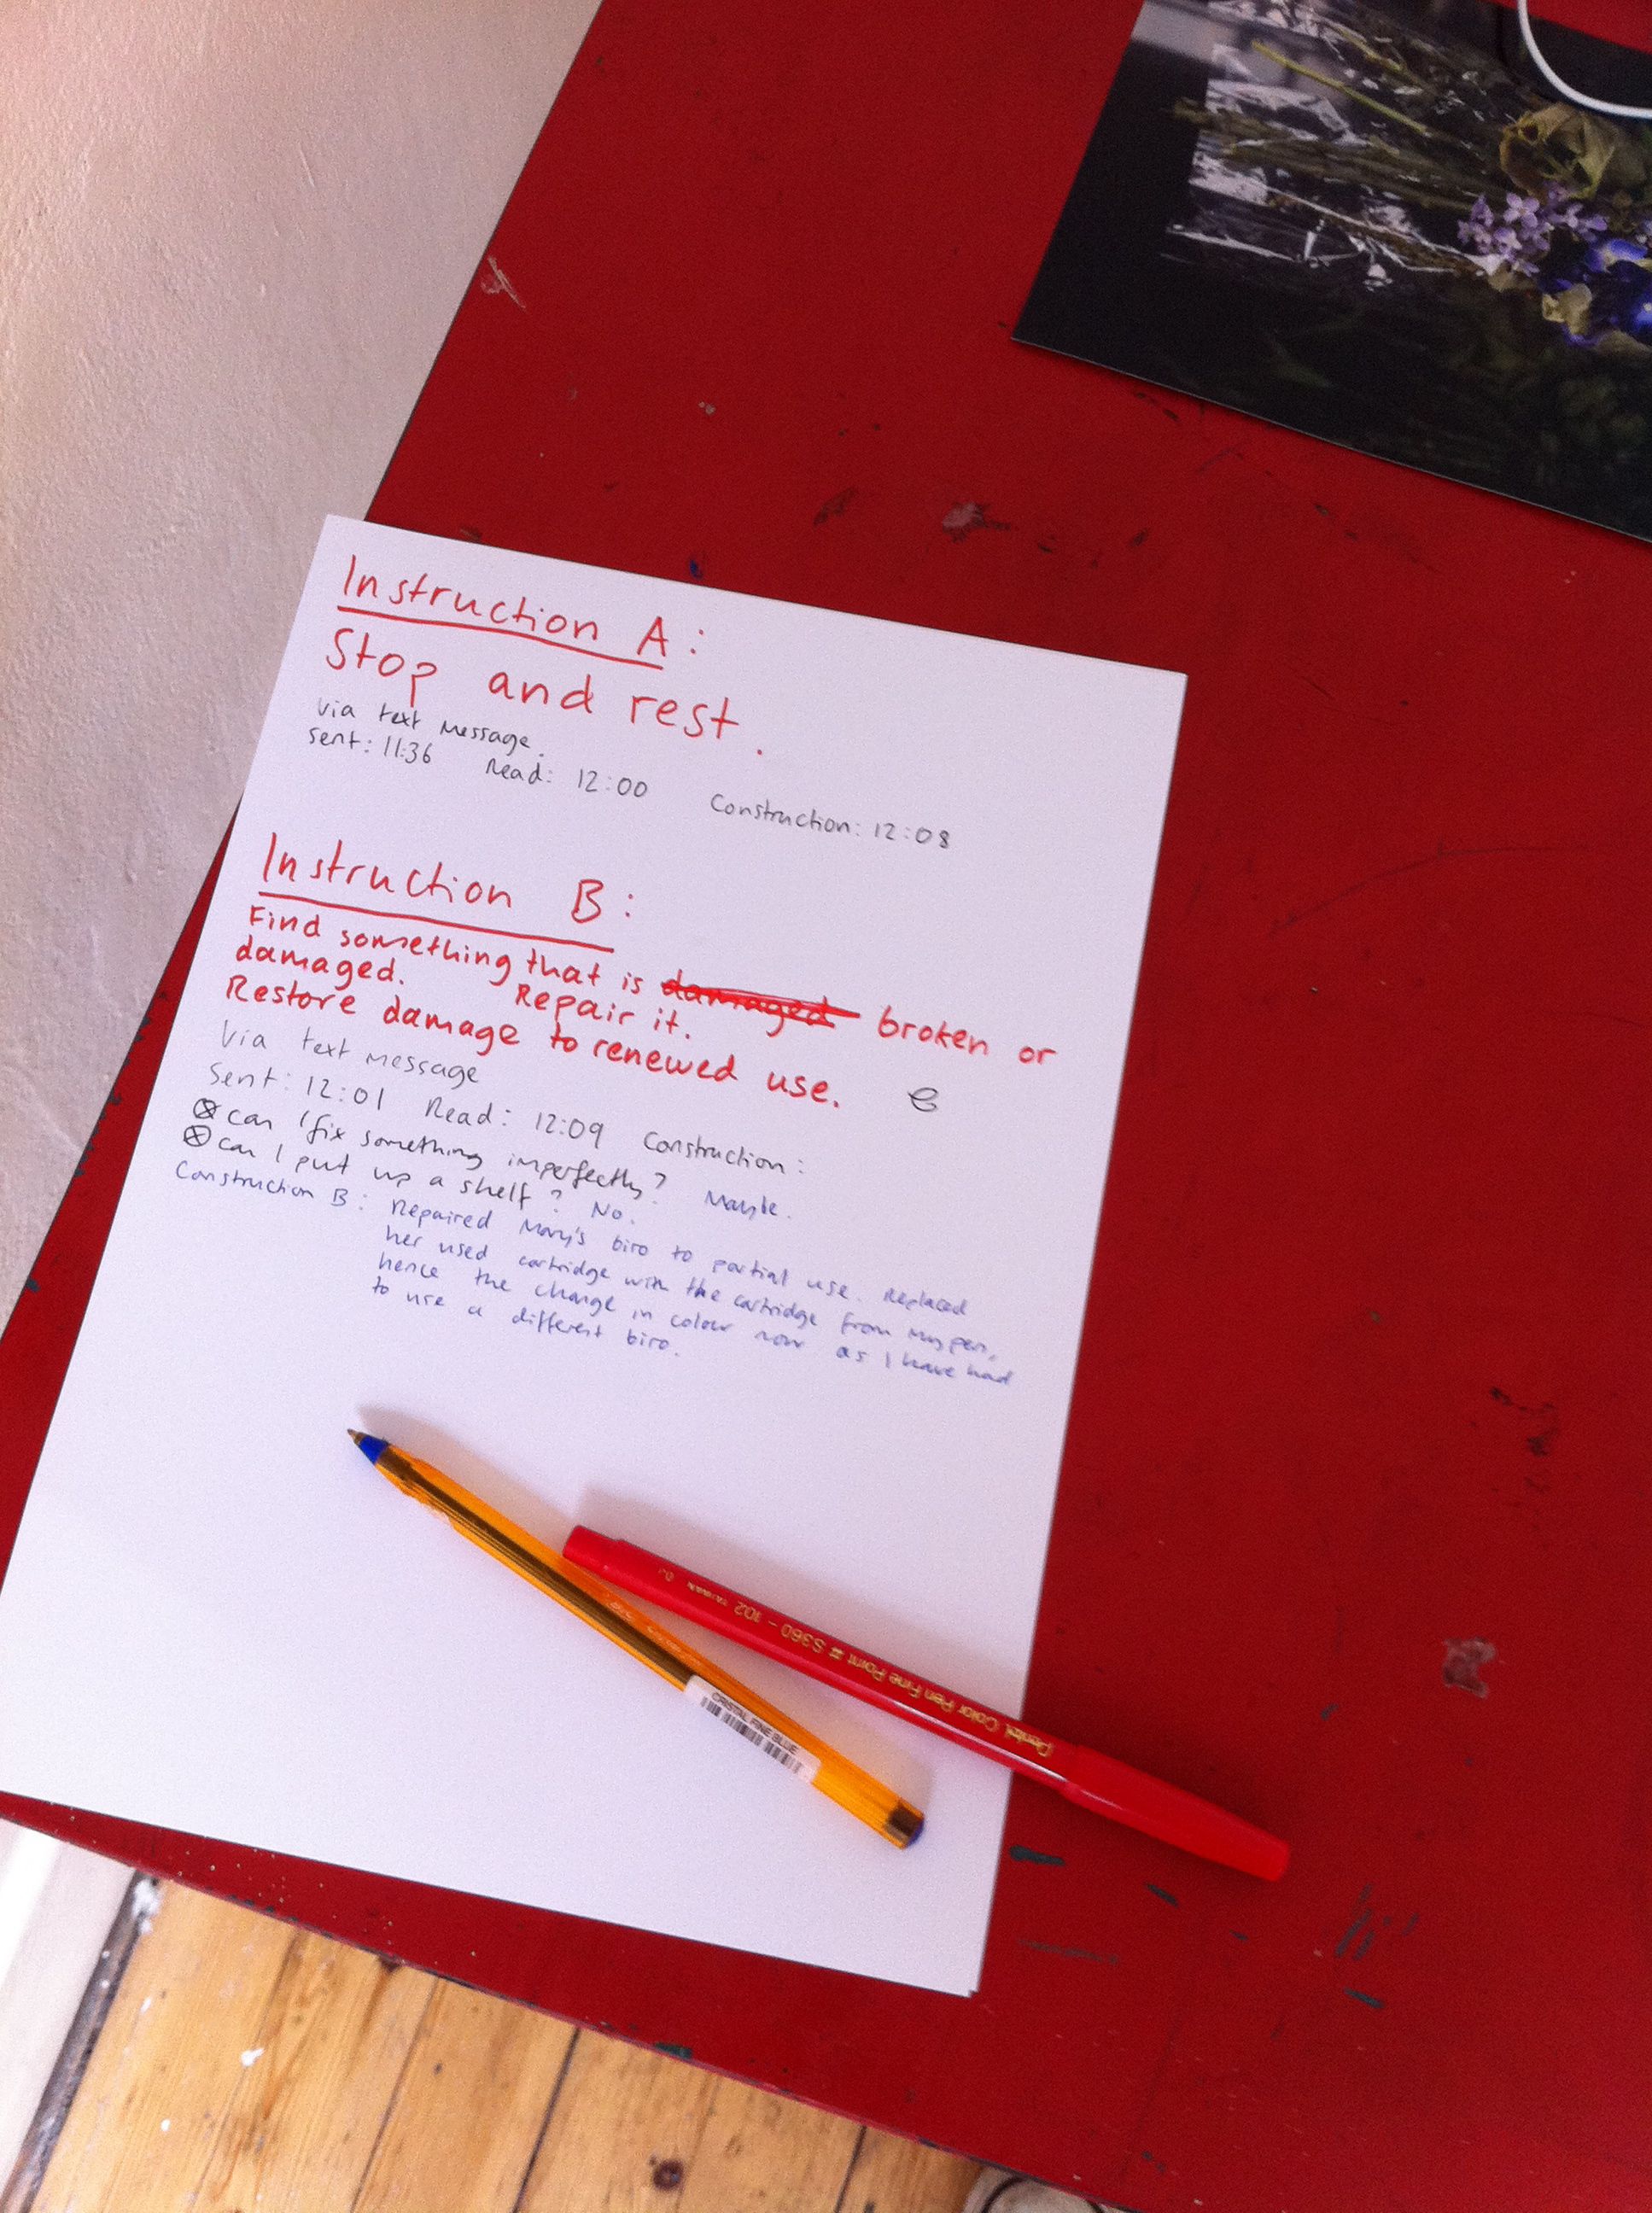 Instruction A:
Stop and rest.
via text message.
Sent: 11:36 Read: 12:00 Construction: 12:08
Instruction B:
Find something that is damaged broken or
damaged. Repair it.
Restore damage to renewed use.
Via text message
Sent: 12:01 Read: 12:09 Construction:
can I fix something imperfectly? Maybe.
can I put up a shelf? No.
Construction B: Repaired Mary's biro to partial use. Replaced
her used cartridge with the cartridge from my pen,
hence the change in colour now as I have had
to use a different biro.
Pentel Color Pen Fine Point # S360-102 TAIWAN
CRISTAL FINE BLUE